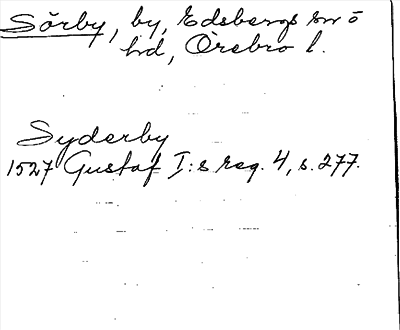 Sörby, by, Edsbergs sn o
hd, Örebro l.
Syderby
1527 Gustaf I:s reg. 4, s. 277.